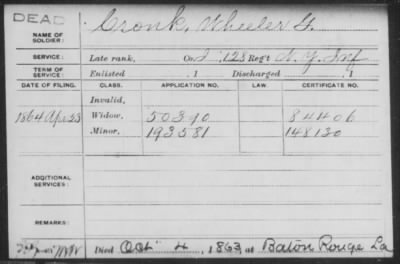 DEAD
NAME OF SOLDIER: Cronk, Wheeler G.
SERVICE: Late rank, Co. I, 128 Reg't N. Y. Inf
TERM OF SERVICE: Enlisted , 1 Discharged , 1
DATE OF FILING. CLASS. APPLICATION NO. LAW. CERTIFICATE NO.
Invalid,
1864 Apr 23 Widow, 50390 84406
Minor, 193581 148130
ADDITIONAL SERVICES:
REMARKS:
Died Oct 4, 1863, at Baton Rouge La